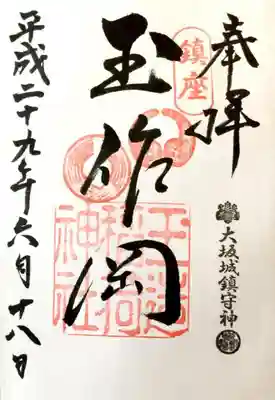 奉拝
大坂城鎮守神
鎮座
玉作岡
玉造稲荷神社
平成二十九年六月十八日